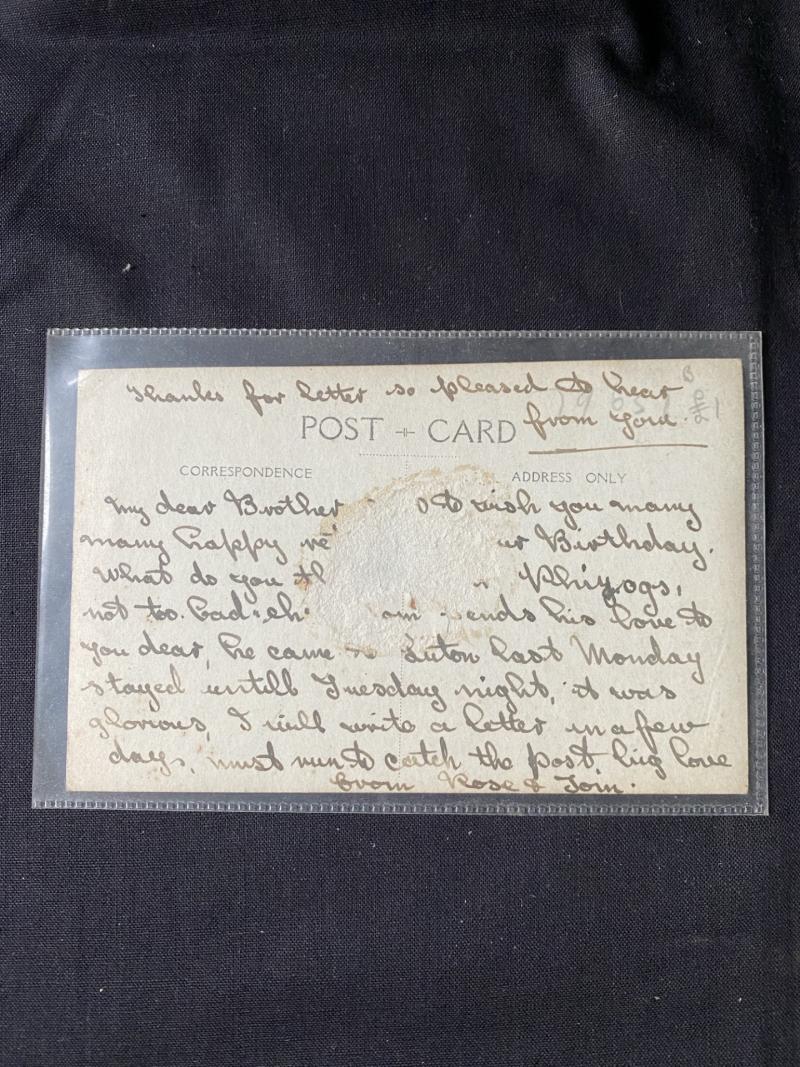 Thanks for letter so pleased to hear
from you.
POST CARD
CORRESPONDENCE
ADDRESS ONLY
My dear Brother to wish you many
many happy re ur Birthday.
What do you th Phizogs,
not too bad eh. om sends his love to
you dear, he came Luton last Monday
stayed untill Tuesday night, it was
glorious, I will write a letter in a few
days, must run to catch the post, big love
from Rose & Tom.